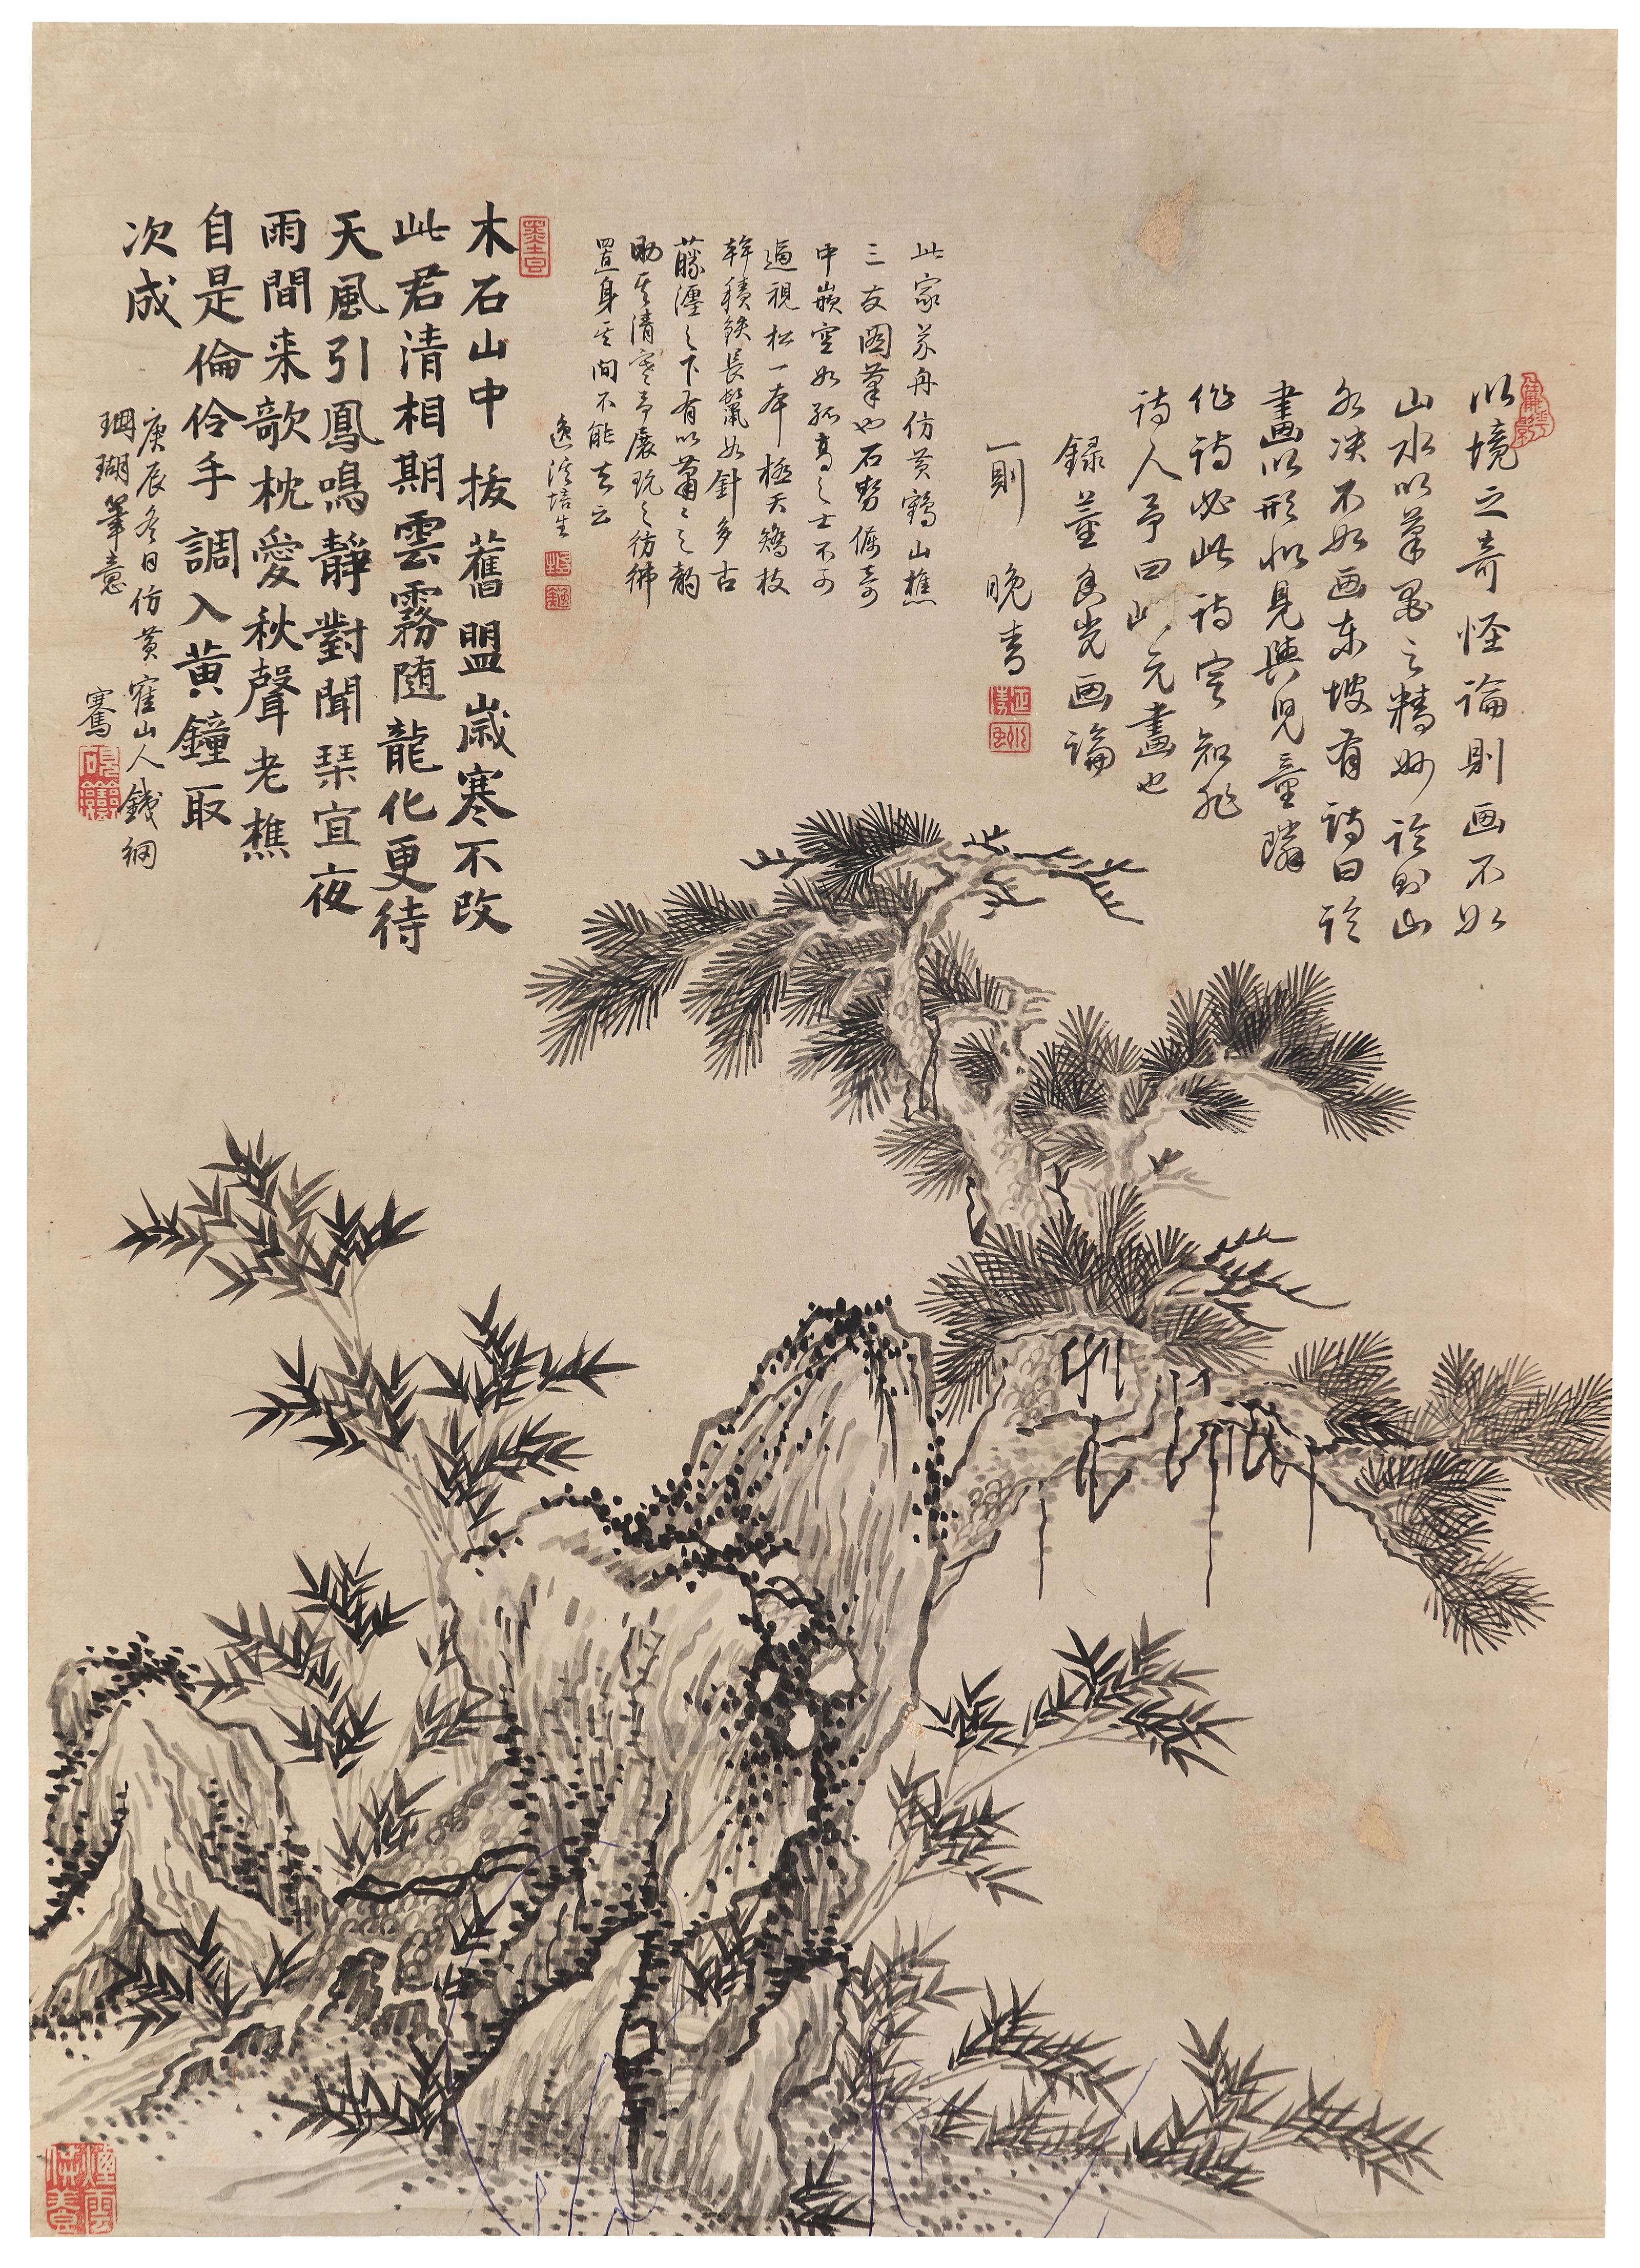 以境之奇怪論則画不如
山水以筆墨之精妙論則山
水决不如画東坡有詩曰論
畫以形似見與兒童隣
作詩必此詩定知非
詩人予曰此元畫也
録董良光画論
一則　晚青
此家芥舟仿黄鶴山樵
三友圖筆也石勢倔奇
中嵌空如孤高之士不可
逼視松一本極天矯枝
幹積鉄長鬣如針多古
藤瀍之下有以萧〻之韵
助其清寒予展玩之彷彿
置身其间不能去云
逸溪培生
木石山中拔舊盟歲寒不改
此君清相期雲霧随龍化更待
天風引鳳鳴靜對聞琴宜夜
雨間来歌枕愛秋聲老樵
自是倫伶手調入黄鐘取
次成
庚辰冬日仿黄崔山人鐵網
珊瑚筆意　騫